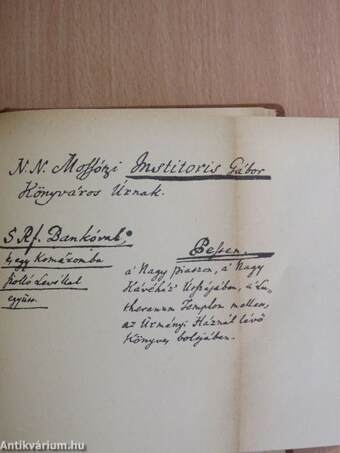 N. N. Mossótzi Institoris Gábor
Könyváros Úrnak.
5 Rf. Bankóval,
s egy Komáromba
szólló Levéllel
együtt.
Pesten.
a' Nagy piaszon, a' Nagy
Kávéház' Utszájában, a' Lu-
theranum Templom mellett,
az Ürményi Háznál lévő
Könyves boltjában.
Antikvárium.hu
Antikvárium.hu